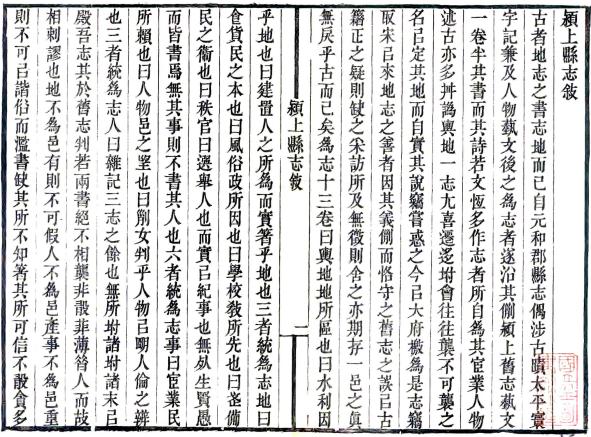 潁上縣志敘
古者地志之書志地而已自元和郡縣志偶涉古蹟太平寰
宇記兼及人物藝文後之為志者遂沿其例潁上舊志藝文
一卷半其書而其詩若文恆多作志者所自為其宦業人物
述古亦多舛譌輿地一志尢喜遷迻坿會往往襲不可襲之
名㠯定其地而自實其說竊嘗惑之今㠯大府檄為是志竊
取宋㠯來地志之善者因其義例而恪守之舊志之誤㠯古
籍正之疑則缺之采訪所及無徵則舍之亦期存一邑之眞
無戾乎古而已矣為志十三卷曰輿地地所區也曰水利因
潁上縣志敘
一
乎地也曰建置人之所為而實著乎地也三者統為志地曰
食貨民之本也曰風俗政所因也曰學校敎所先也曰武備
民之衞也曰秩官曰選舉人也而實㠯紀事也無生賢愚
而皆書焉無其事則不書其人也六者統為志事曰宦業民
所賴也曰人物邑之望也曰列女判乎人物㠯朙人倫之辨
也三者統為志人曰雜記三志之餘也無所坿諸坿諸末㠯
殿吾志其於舊志判若兩書絕不相襲非敢菲薄昝人而故
相刺謬也地不為邑有則不可假人不為邑產事不為邑重
則不可㠯諧俗而濫書缺其所不知著其所可信不敢貪多